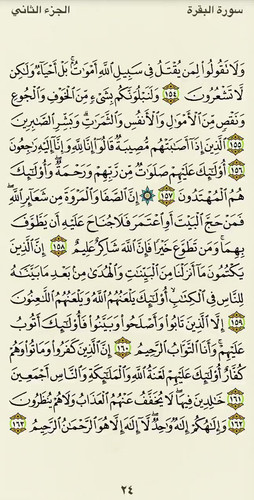 سورة البقرة
الجزء الثاني
وَلَا تَقُولُوا لِمَن يُقْتَلُ فِي سَبِيلِ اللَّهِ أَمْوَاتٌ بَلْ أَحْيَاءٌ وَلَٰكِن
لَّا تَشْعُرُونَ ١٥٤ وَلَنَبْلُوَنَّكُم بِشَيْءٍ مِّنَ الْخَوْفِ وَالْجُوعِ
وَنَقْصٍ مِّنَ الْأَمْوَالِ وَالْأَنفُسِ وَالثَّمَرَاتِ وَبَشِّرِ الصَّابِرِينَ
١٥٥ الَّذِينَ إِذَا أَصَابَتْهُم مُّصِيبَةٌ قَالُوا إِنَّا لِلَّهِ وَإِنَّا إِلَيْهِ رَاجِعُونَ
١٥٦ أُولَٰئِكَ عَلَيْهِمْ صَلَوَاتٌ مِّن رَّبِّهِمْ وَرَحْمَةٌ وَأُولَٰئِكَ
هُمُ الْمُهْتَدُونَ ١٥٧ إِنَّ الصَّفَا وَالْمَرْوَةَ مِن شَعَائِرِ اللَّهِ
فَمَنْ حَجَّ الْبَيْتَ أَوِ اعْتَمَرَ فَلَا جُنَاحَ عَلَيْهِ أَن يَطَّوَّفَ
بِهِمَا وَمَن تَطَوَّعَ خَيْرًا فَإِنَّ اللَّهَ شَاكِرٌ عَلِيمٌ ١٥٨ إِنَّ الَّذِينَ
يَكْتُمُونَ مَا أَنزَلْنَا مِنَ الْبَيِّنَاتِ وَالْهُدَىٰ مِن بَعْدِ مَا بَيَّنَّاهُ
لِلنَّاسِ فِي الْكِتَابِ أُولَٰئِكَ يَلْعَنُهُمُ اللَّهُ وَيَلْعَنُهُمُ اللَّاعِنُونَ
١٥٩ إِلَّا الَّذِينَ تَابُوا وَأَصْلَحُوا وَبَيَّنُوا فَأُولَٰئِكَ أَتُوبُ
عَلَيْهِمْ وَأَنَا التَّوَّابُ الرَّحِيمُ ١٦٠ إِنَّ الَّذِينَ كَفَرُوا وَمَاتُوا وَهُمْ
كُفَّارٌ أُولَٰئِكَ عَلَيْهِمْ لَعْنَةُ اللَّهِ وَالْمَلَائِكَةِ وَالنَّاسِ أَجْمَعِينَ
١٦١ خَالِدِينَ فِيهَا لَا يُخَفَّفُ عَنْهُمُ الْعَذَابُ وَلَا هُمْ يُنظَرُونَ
١٦٢ وَإِلَٰهُكُمْ إِلَٰهٌ وَاحِدٌ لَّا إِلَٰهَ إِلَّا هُوَ الرَّحْمَٰنُ الرَّحِيمُ ١٦٣
٢٤